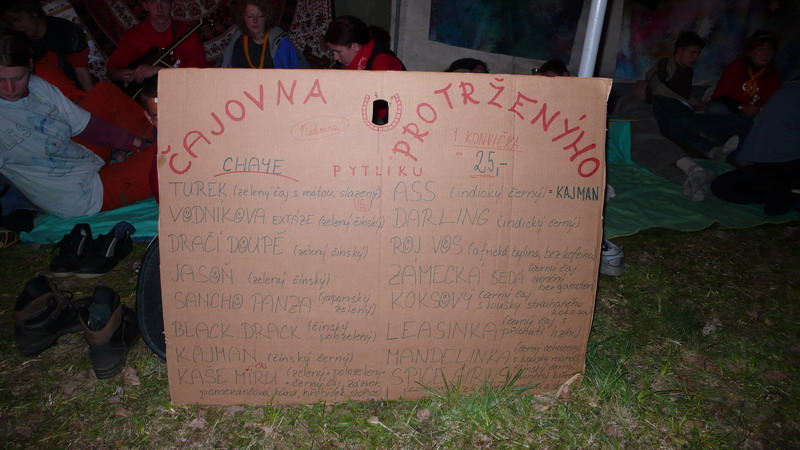 ČAJOVNA PROTRŽENÝHO
PYTLÍKU
1 KONVIČKA
25,-
CHAYE
TUREK (zelený čaj s mátou, slazený)
VODNÍKOVA EXTÁZE (zelený čínský)
DRAČÍ DOUPĚ (zelený čínský)
JASOŇ (zelený čínský)
SANCHO PANZA (japonský zelený)
BLACK DRACK (čínský polozelený)
KAJMAN (čínský černý)
KAŠE MÍRU (zelený + polozelený + černý čaj, zázvor,
pomerančová kůra, hřebíček, skořice)
ASS (indický černý) = KAJMAN
DARLING (indický černý)
ROJ VOS (africká bylina, bez kofeinu)
ZÁMECKÁ ŠEDÁ (černý čaj
voněný
bergamotem)
KOKSOVÝ (černý čaj
s kousky strouhaného
kokosu)
LEASINKA (černý čaj s
příchutí
MANDELINKA (černý
s kousky mandlí)
SPICE